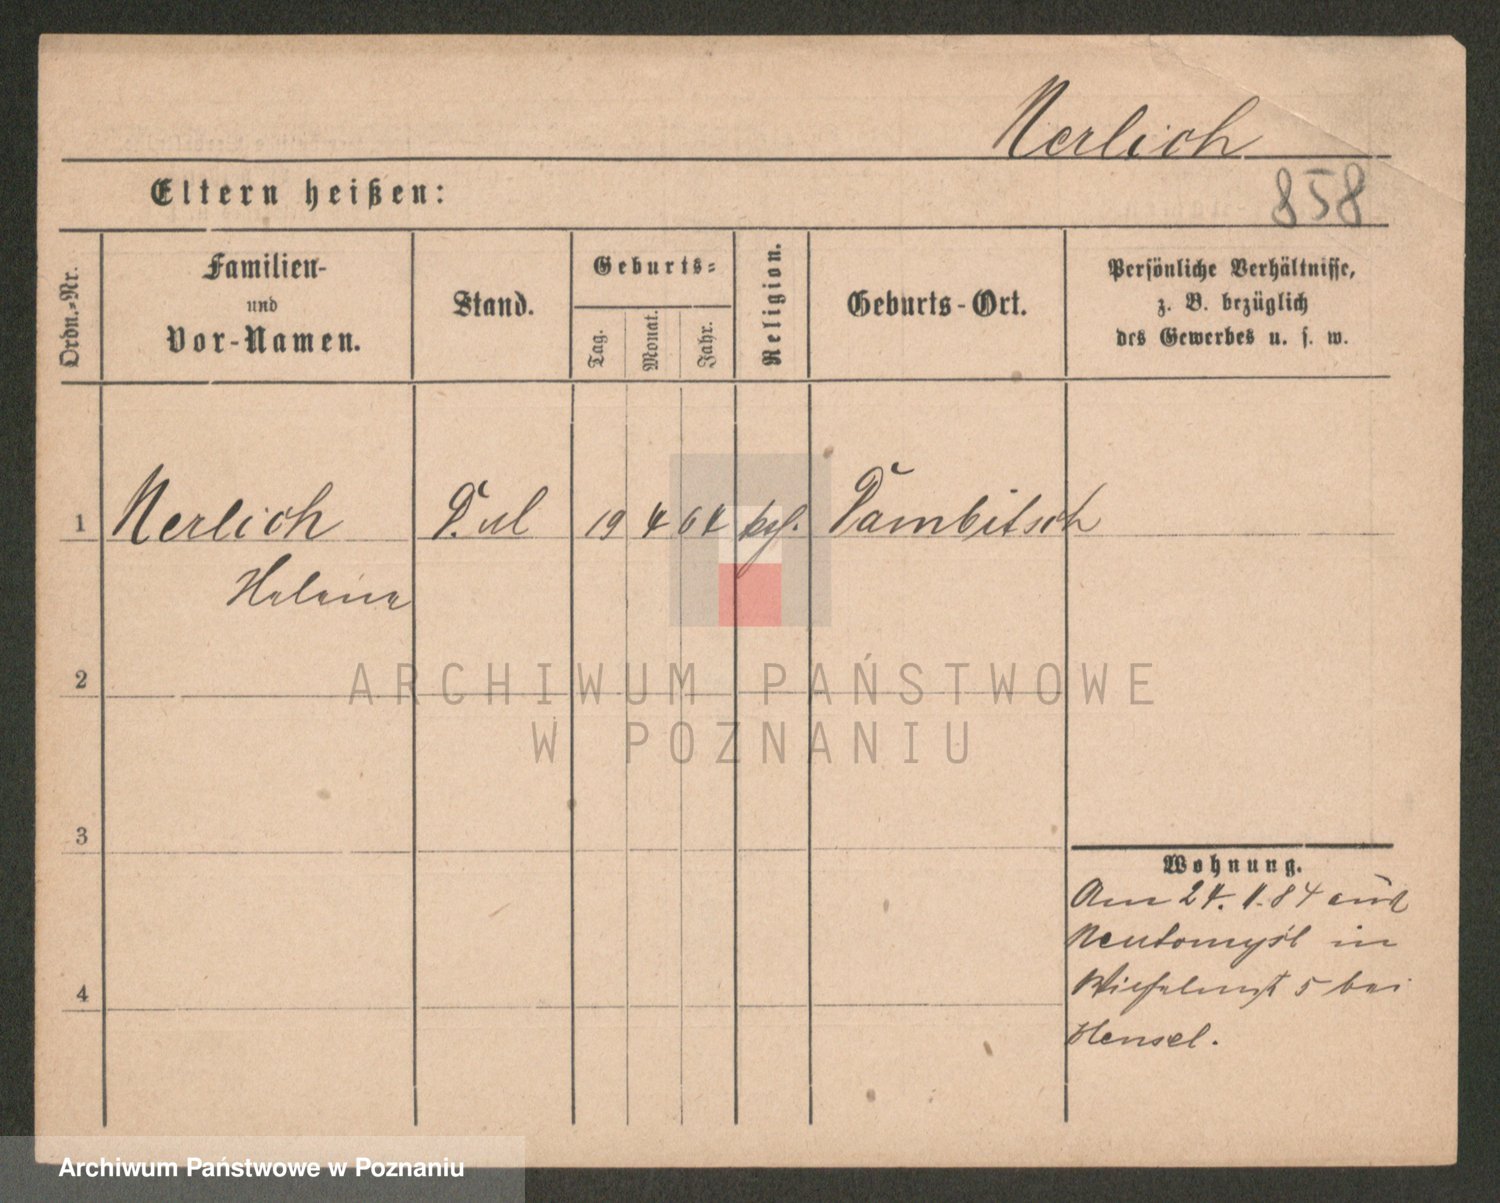 Nerlich
Eltern heißen:
858
Ordn.-Nr.
Familien-
und
Vor-Namen.
Stand.
Geburts-
Tag.
Monat.
Jahr.
Religion.
Geburts-Ort.
Persönliche Verhältnisse,
z. B. bezüglich
des Gewerbes u. s. w.
1 Nerlich 19 4 64 Dambitsch
Helene
2
3
4
Wohnung.
Am 24. 1. 84 aus
Neutomysl in
5 bei
Hensel.
ARCHIWUM PAŃSTWOWE
W POZNANIU
Archiwum Państwowe w Poznaniu